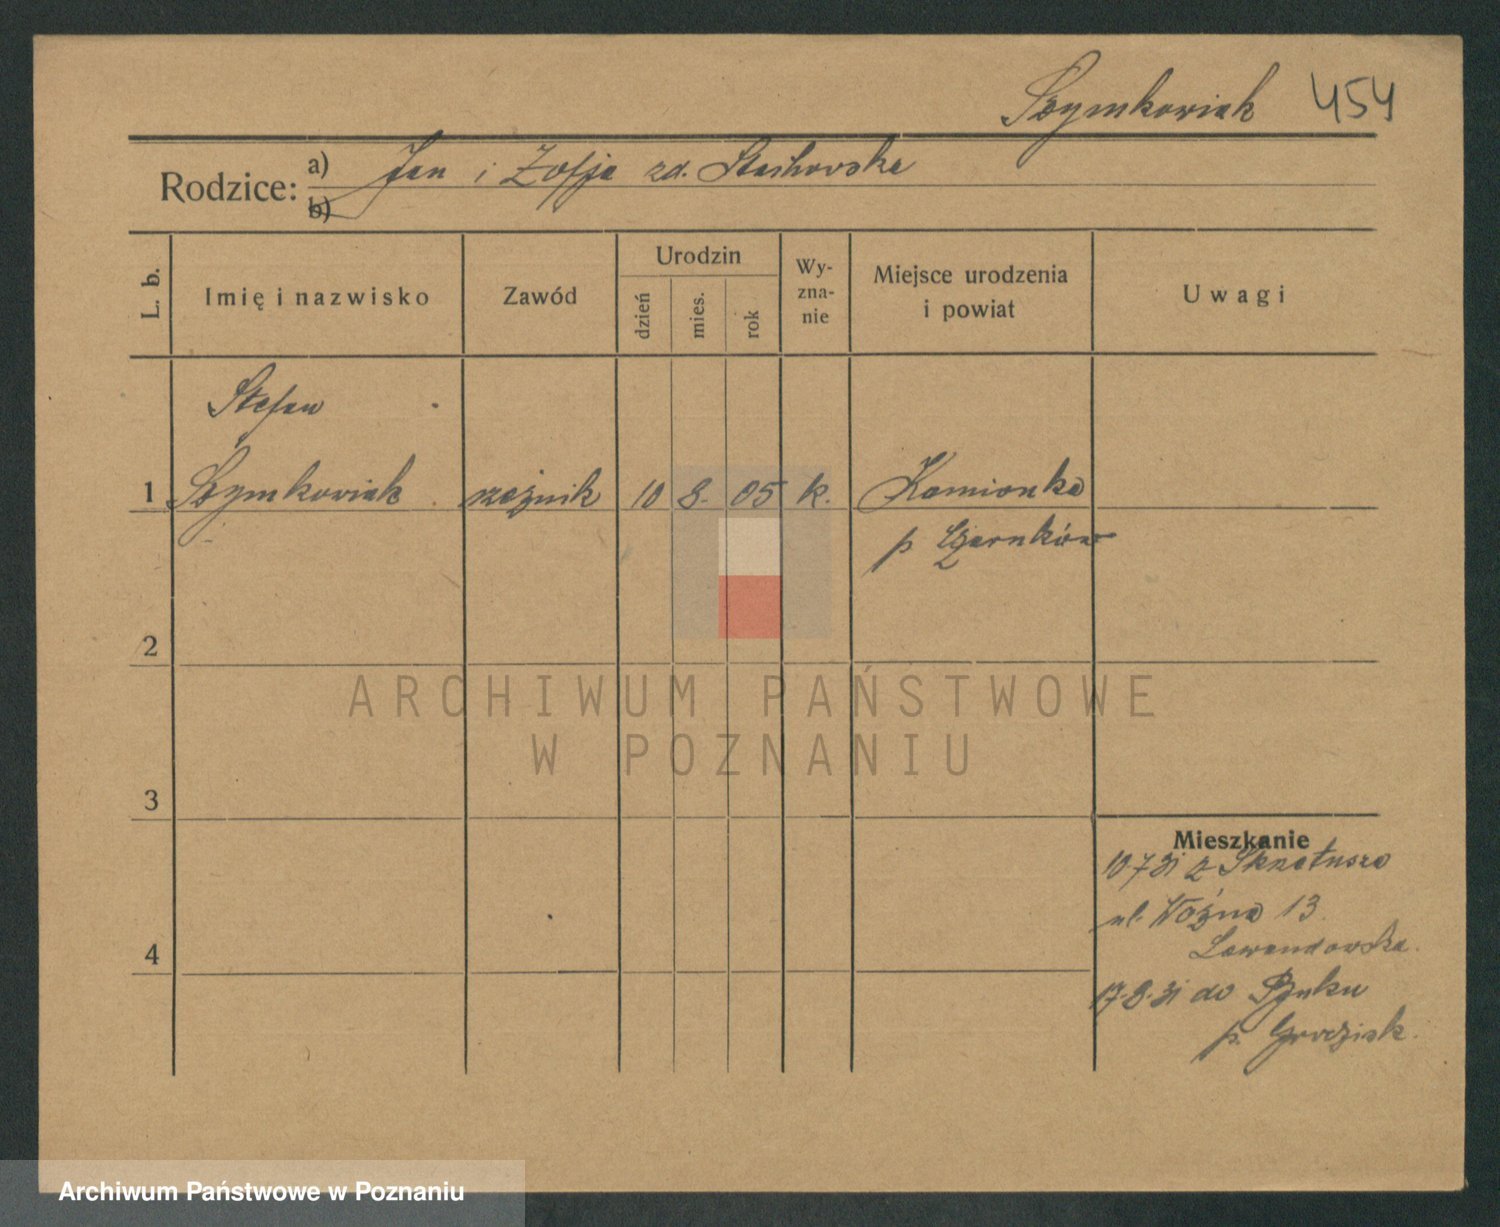 Szymkowiak 454
Rodzice: a) Jan i Zofja zd. Stachowska
b)
L. b. Imię i nazwisko Zawód Urodzin dzień mies. rok Wy-zna-nie Miejsce urodzenia i powiat Uwagi
Stefan
1 Szymkowiak rzeźnik 10 8. 05 k. Kamionka
p Czarnków
2
ARCHIWUM PAŃSTWOWE
W POZNANIU
3
Mieszkanie
10.7.31 z Skrzetusza
ul. Woźna 13
Lewandowska.
4
17.8.31 do
p. Grodzisk.
Archiwum Państwowe w Poznaniu